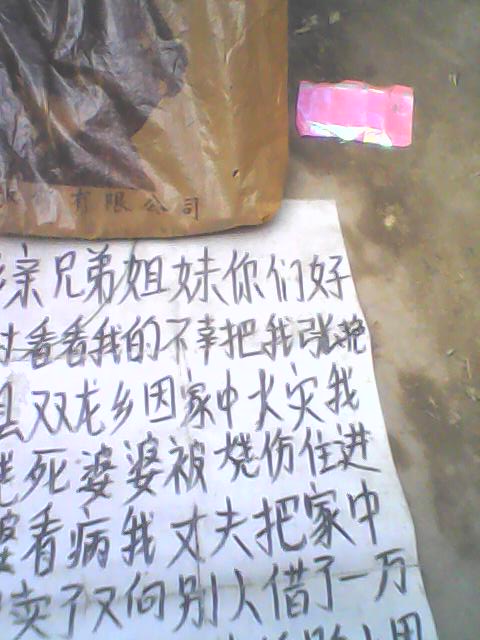 有限公司
亲兄弟姐妹你们好
过看看我的不幸把我张艳
县双龙乡因家中火灾我
烧死婆婆被烧伤住进
婆看病我丈夫把家中
卖了又向别人借了一万